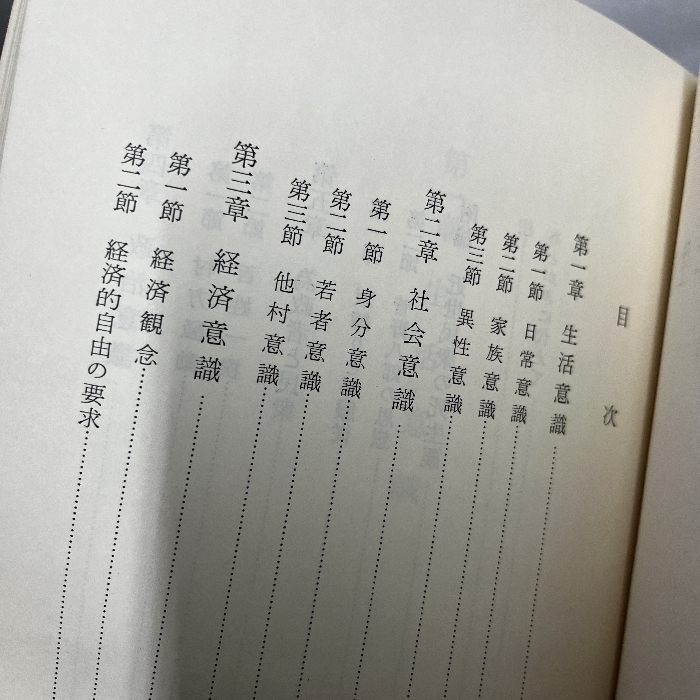 目次
第一章 生活意識
第一節 日常意識
第二節 家族意識
第三節 異性意識
第二章 社会意識
第一節 身分意識
第二節 若者意識
第三節 他村意識
第三章 経済意識
第一節 経済観念
第二節 経済的自由の要求